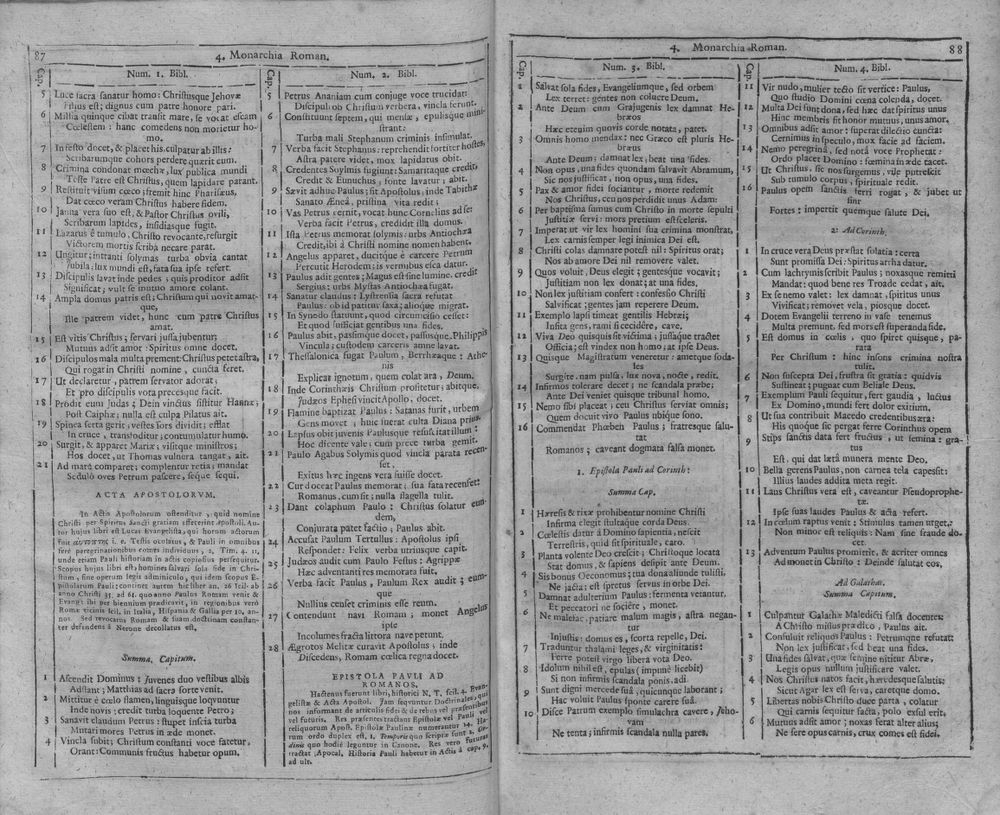 87
4. Monarchia Roman.
Cap.
Num. 1. Bibl.
5 Luce sacra sanatur homo: Christusque Jehovæ
Filius est; dignus cum patre honore pari.
6 Millia quinque cibat transit mare, se vocat escam
Cœlestem: hanc comedens non morietur ho-
mo.
7 In festo docet, & placet his, culpatur ab illis:
Scribarumque cohors perdere quærit eum.
8 Crimina condonat mœchæ, lux publica mundi
Teste Patre est Christus, quem lapidare parant.
9 Restituit visum cœco; fremit hinc Pharisæus,
Dat cœco veram Christus habere fidem.
10 Janua vera suo est, & Pastor Christus ovili,
Scribarum lapides, insidiasque fugit.
11 Lazarus è tumulo, Christo revocante, resurgit
Victorem mortis scriba necare parat.
12 Ungitur; intranti solymas turba ovia cantat
Jubila: lux mundi est, fata sua ipse refert.
13 Discipulis lavat inde pedes: quis proditor adsit
Significat; vult se mutuo amore colant.
14 Ampla domus patris est; Christum qui novit amat-
que,
Ille patrem videt, hunc cum patre Christus
amat.
15 Est vitis Christus; servari jussa jubentur;
Mutuus adsit amor Spiritus omne docet.
16 Discipulos mala multa prement: Christus petet astra,
Qui rogat in Christi nomine, cuncta feret.
17 Ut declaretur, patrem servator adorat;
Et pro discipulis vota precesque facit.
18 Prodit eum Judas; Dein vinctus sistitur Hannæ;
Post Caiphæ; nulla est culpa Pilatus ait.
19 Spinea serta gerit; vestes sors dividit; efflat
In cruce, transfoditur; contumulatur homo.
20 Surgit, & apparet Mariæ; visitque ministros;
Hos docet, ut Thomas vulnera tangat, ait.
21 Ad mare comparet; complentur retia; mandat
Sedulò oves Petrum pascere, seque sequi.
ACTA APOSTOLORUM.
In Actis Apostolorum ostenditur, quid nomine
Christi per Spiritus Sancti gratiam effecerint apostoli. Au-
tor hujus libri est Lucas Evangelista, qui horum actorum
fuit αὐτόπτης i. e. Testis oculatus, & Pauli in omnibus
ferè peregrinationibus comes individuus, 2. Tim. 4. 11,
unde etiam Pauli historiam in actis copiosius persequitur.
Scopus hujus libri est, hominem salvari sola fide in Chri-
stum, sine operum legis adminiculo, qui idem scopus E-
pistolarum Pauli: continet autem hic liber an. 26 scil. ab
anno Christi 35. ad 61. quo anno Paulus Romam venit &
Evangel. ibi per biennium prædicavit, in regionibus verò
Romæ vicinis scil. in Italia, Hispania & Gallia per 10, an-
nos. Sed revocatus Romam & suam doctrinam constan-
ter defendens à Nerone decollatus est.
Summa, Capitum.
1 Ascendit Dominus: Juvenes duo vestibus albis
Adstant; Matthias ad sacra sorte venit.
2 Mittitur è cœlo flamen, linguisque loquuntur
Inde novis; credit turba loquente Petro;
3 Sanavit claudum Petrus: stupet inscia turba
Mutari mores Petrus in æde monet.
4 Vincla subit; Christum constanti voce fatetur,
Orant: Communis fructus habetur opum.
Cap.
Num. 2. Bibl.
5 Petrus Ananiam cum conjuge voce trucidat:
Discipuli ob Christum verbera, vincla ferunt.
6 Constituunt septem, qui mensæ, epulisque mini-
strant:
Turba mali Stephanum criminis insimulat.
7 Verba facit Stephanus: reprehendit fortiter hostes,
Astra patere videt, mox lapidatus obit.
8 Credentes Solymis fugiunt: Samaritaque credit
Credit & Eunuchus, fonte lavatur, abit.
9 Sævit adhuc Paulus; fit Apostolus, inde Tabithæ
Sanato Æneâ, pristina vita redit;
10 Vas Petrus cernit, vocat hunc Cornelius ad se:
Verba facit Petrus, credidit illa domus.
11 Ista Petrus memorat solymis: urbs Antiochæa
Credit, ibi à Christi nomine nomen habent.
12 Angelus apparet, ducitque è carcere Petrum
Percutit Herodem: is vermibus esca datur.
13 Paulus adit gentes; Magus est sine lumine, credit
Sergius: urbs Mystas Antiochæa fugat.
14 Sanatur claudus: Lystrensia sacra refutat
Paulus: obid patitur saxa; aliosque migrat.
15 In Synodo statuunt, quod circumcisio cesset:
Et quod sufficiat gentibus una fides.
16 Paulus abit, passimque docet, passusque, Philippis
Vincula; custodem carceris amne lavat.
17 Thessalonica fugat Paulum, Berrhœaque: Athe-
nis
Explicat ignotum, quem colat ara, Deum.
18 Inde Corinthæis Christum profitetur; abitque,
Judæos Ephesi vincit Apollo, docet.
19 Flamine baptizat Paulus: Satanas furit, urbem
Gens movet; huic fuerat culta Diana prius.
20 Lapsus obit juvenis Paulusque resuscitat illum:
Hoc discente vale; cum prece turba gemit.
21 Paulo Agabus Solymis quod vincla parata recen-
set,
Exitus hæc ingens vera fuisse docet.
22 Cur doceat Paulus memorat; sua fata recenset:
Romanus, cum sit; nulla flagella tulit.
23 Dant colaphum Paulo: Christus solatur eun-
dem,
Conjurata patet factio, Paulus abit.
24 Accusat Paulum Tertullus: Apostolus ipsi
Respondet: Felix verba utriusque capit.
25 Judæos audit cum Paulo Festus; Agrippæ
Hæc adventanti res memorata fuit.
26 Verba facit Paulus, Paulum Rex audit; eum-
que
Nullius censet criminis esse reum.
27 Contendunt navi Romam; monet Angelus
ipse
Incolumes fracta littora nave petunt.
28 Ægrotos Melitæ curavit Apostolus, inde
Discedens, Romam cœlica regna docet.
EPISTOLA PAULI AD
ROMANOS.
Hactenus fuerunt libri, historici N. T. scil. 4. Evan-
gelistæ & Acta Apostol. Jam sequuntur Doctrinales, qui
nos informant de articulis fidei & de rebus vel præsentibus
vel futuris. Res præsentes tractant Epistolæ vel Pauli vel
reliquorum Apost. Epistolæ Paulinæ numerantur 14. Ha-
rum ordo duplex est, 1. Temporis quo scriptæ sunt 2. Or-
dinis quo hodie leguntur in Canone. Res vero futuras
tractat, Apocal. Historia Pauli habetur in Actis à cap. 9.
ad ult.
4. Monarchia Roman.
88
Cap.
Num. 3. Bibl.
1 Salvat sola fides, Evangeliumque, sed orbem
Lex terret: gentes non coluere Deum.
2 Ante Deum cum Grajugenis lex damnat He-
bræos
Hæc etenim quovis corde notata, patet.
3 Omnis homo mendax: nec Græco est pluris He-
bræus
Ante Deum: damnat lex, beat una fides.
4 Non opus, una fides quondam salvavit Abramum,
Sic nos justificat, non opus, una fides.
5 Pax & amor fidei sociantur, morte redemit
Nos Christus, ceu nos perdidit unus Adam:
6 Per baptisma sumus cum Christo in morte sepulti
Justitiæ servi: mors pretium est sceleris.
7 Imperat ut vir lex homini sua crimina monstrat,
Lex carni semper legi inimica Dei est.
8 Christi colas damnare potest nil: Spiritus orat;
Nos ab amore Dei nil removere valet.
9 Quos voluit, Deus elegit; gentesque vocavit;
Justitiam non lex donat; at una fides.
10 Non lex justitiam confert: confessio Christi
Salvificat: gentes jam reperere Deum.
11 Exemplo lapsi timeat gentilis Hebræi;
Insita gens, rami si cecidere, cave.
12 Viva Deo quisquis fit victima; jussaque tractet
Officii; est vindex non homo, at ipse Deus.
13 Quisque Magistratum veneretur: ametque soda-
les
Surgite, nam pulsa, lux nova, nocte, redit.
14 Infirmos tolerare decet; ne scandala præbe;
Ante Dei veniet quisque tribunal homo.
15 Nemo sibi placeat; ceu Christus serviat omnis;
Quem docuit vivo Paulus ubique sono.
16 Commendat Phœben Paulus; fratresque salu-
tat
Romanos; caveant dogmata falsa monet.
1. Epistola Pauli ad Corinth:
Summa Cap.
1 Hæresis & rixæ prohibentur nomine Christi
Infirma elegit stultaque corda Deus.
2 Cœlestis datur à Domino sapientia, nescit
Terrestris, quid sit spirituale, caro.
3 Planta volente Deo crescit; Christoque locata
Stat domus, & sapiens desipit ante Deum.
4 Sis bonus Oeconomus; tua dona aliunde tulisti,
Ne jacta: est spretus servus in orbe Dei.
5 Damnat adulterium Paulus: fermenta vetantur,
Et peccatori ne sociêre, monet.
6 Ne male fac, patiare malum magis, astra negan-
tur
Injustis: domus es, scorta repelle, Dei.
7 Traduntur thalami leges, & virginitatis:
Ferre potest virgo libera vota Deo.
8 Idolum nihil est, epulas (impunè licebit)
Si non infirmis scandala ponis, adi
9 Sunt digni mercede suâ, quicunque laborant;
Hac voluit Paulus sponte carere suâ.
10 Disce Patrum exemplo simulachra cavere, Jeho-
vam
Ne tenta; infirmis scandala nulla pares.
Cap.
Num. 4. Bibl.
11 Vir nudo, mulier tecto sit vertice: Paulus,
Quo studio Domini cœna colenda, docet.
12 Multa Dei sunt dona, sed hæc dat spiritus unus
Hinc membris sit honor mutuus, unus amor.
13 Omnibus adsit amor: superat dilectio cuncta:
Cernimus in speculo, mox facie ad faciem.
14 Nemo peregrinâ, sed notâ voce Prophetat:
Ordo placet Domino: fœmina in æde tacet.
15 Ut Christus, sic nos surgemus, vile putrescit
Sub tumulo corpus, spirituale redit.
16 Paulus opem sanctis ferri rogat, & jubet ut
sint
Fortes: impertit quemque salute Dei.
2: Ad Corinth.
1 In cruce vera Deus præstat solatia: certa
Sunt promissa Dei: Spiritus arrha datur.
2 Cum lachrymis scribit Paulus; noxasque remitti
Mandat: quod bene res Troade cedat, ait.
3 Ex se nemo valet: lex damnat, spiritus unus
Vivificat; removet vela, piosque docet.
4 Dotem Evangelii terreno in vase tenemus
Multa premunt, sed mors est superanda fide.
5 Est domus in cœlis, quo spiret quisque, pa-
rata
Per Christum: hinc insons crimina nostra
tulit.
6 Non suscepta Dei, frustra sit gratia: quidvis
Sustineat; pugnat cum Beliale Deus.
7 Exemplum Pauli sequitur, fert gaudia, luctus
Ex Domino, mundi fert dolor exitium.
8 Ut sua contribuit Macedo credentibus æra:
His quoque sic pergat ferre Corinthus opem
9 Stips sanctis data fert fructus, ut semina: gra-
tus
Est, qui dat lætâ munera mente Deo.
10 Bella gerens Paulus, non carnea tela capessit:
Illius laudes addita meta regit.
11 Laus Christus vera est, caveantur Pseudoprophe-
tæ.
Ipse suas laudes Paulus & acta refert.
12 In cœlum raptus venit; Stimulus tamen urget,:
Non minor est reliquis: Nam sine fraude do-
cet.
13 Adventum Paulus promittit, & acriter omnes
Ad monet in Christo: Deinde salutat eos,
Ad Galathas.
Summa Capitum.
1 Culpantur Galathæ Maledicti falsa docentes:
A Christo missus prædico, Paulus ait.
2 Consuluit reliquos Paulus: Petrumque refutat:
Non lex justificat, sed beat una fides.
3 Una fides salvat, quæ semine nititur Abræ,
Legis opus nullum justificare valet.
4 Nos Christus natos facit, hæredesque salutis:
Sicut Agar lex est serva, caretque domo.
5 Libertas nobis Christo duce parta, colatur
Qui carnis sequitur facta, polo exsul erit,
6 Mutuus adsit amor; noxas ferat alter alius;
Ne sere opus carnis, crux comes est fidei.